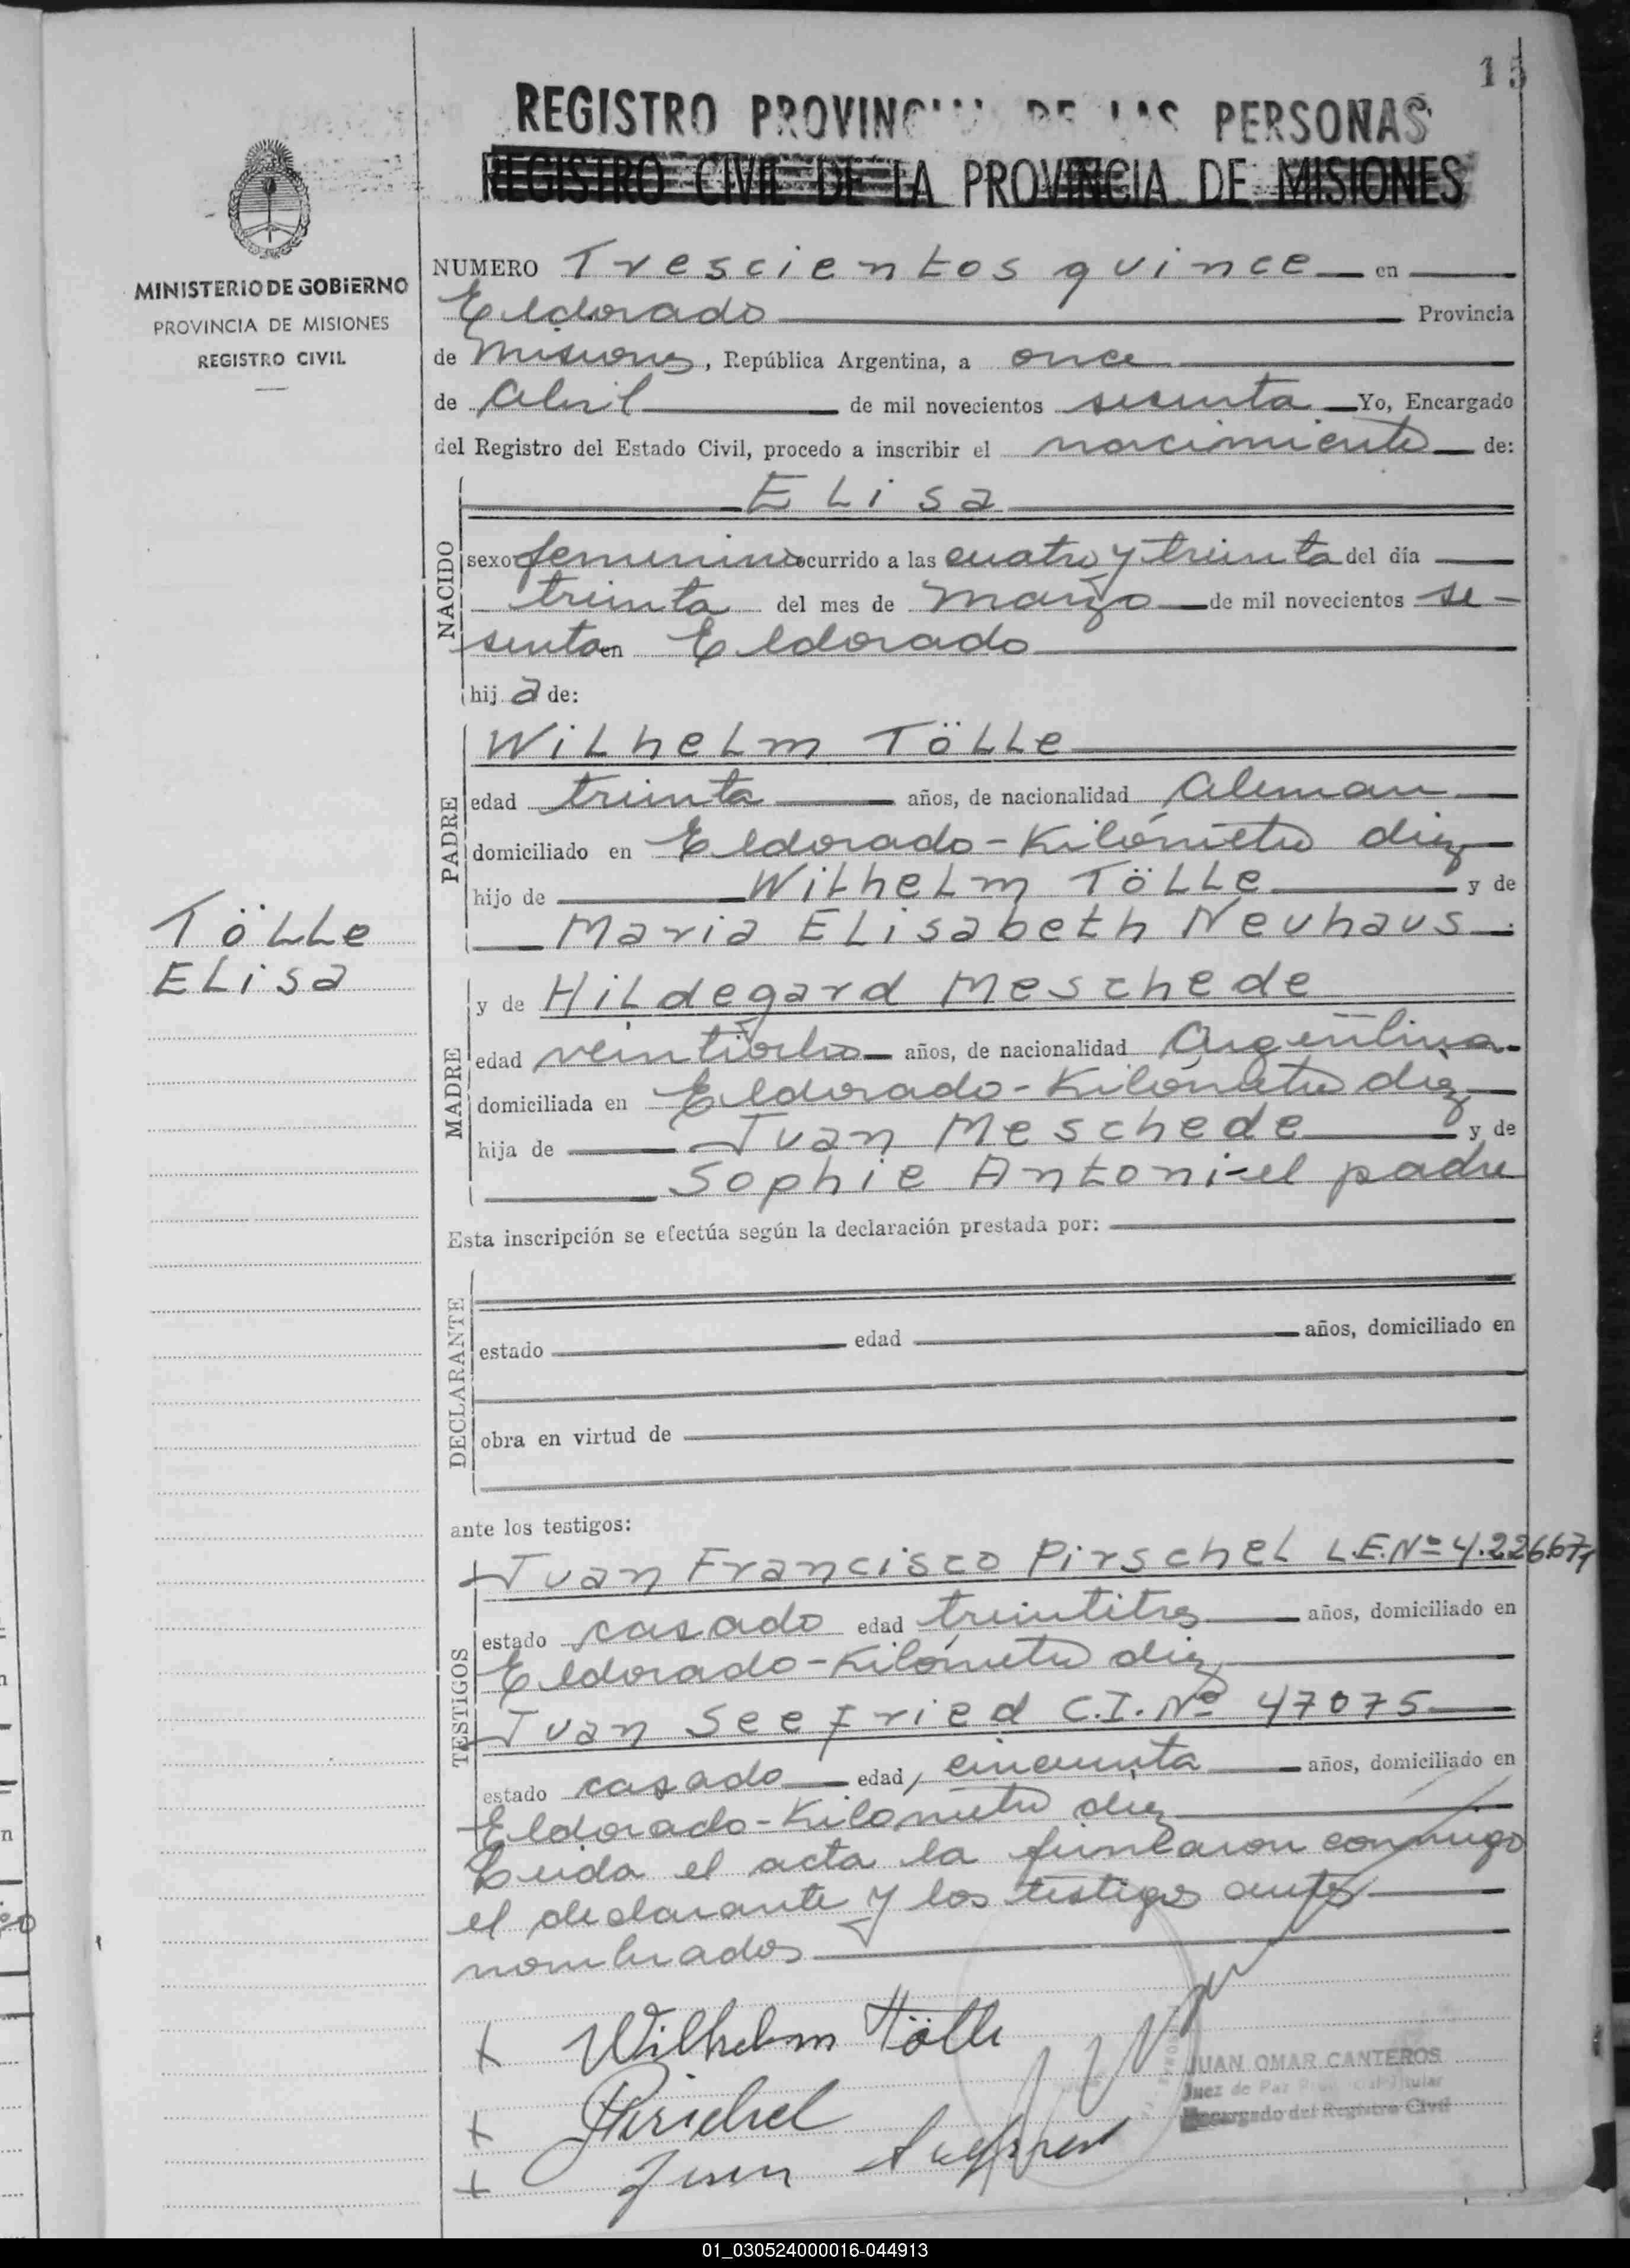 15
REGISTRO PROVINCIAL DE LAS PERSONAS
REGISTRO CIVIL DE LA PROVINCIA DE MISIONES
MINISTERIO DE GOBIERNO
PROVINCIA DE MISIONES
REGISTRO CIVIL
NUMERO Trescientos quince en
Eldorado Provincia
de Misiones, República Argentina, a once
de Abril de mil novecientos sesenta Yo, Encargado
del Registro del Estado Civil, procedo a inscribir el nacimiento de:
NACIDO
ELisa
sexo femenino ocurrido a las cuatro y treinta del día
treinta del mes de Marzo de mil novecientos se-
senta en Eldorado
hija de:
PADRE
WiLheLm TöLLe
edad treinta años, de nacionalidad Aleman
domiciliado en Eldorado-Kilómetro diez
hijo de WiLheLm TöLLe y de
Maria ELisabeth Neuhaus
TöLLe
ELisa
MADRE
y de HiLdegard Meschede
edad veintiocho años, de nacionalidad Argentina
domiciliada en Eldorado-Kilómetro diez
hija de Juan Meschede y de
Sophie Antoni-el padre
Esta inscripción se efectúa según la declaración prestada por:
DECLARANTE
estado edad años, domiciliado en
obra en virtud de
ante los testigos:
TESTIGOS
Juan Francisco PirscheL L.E.Nº 4.226.671
estado casado edad treintitres años, domiciliado en
Eldorado-Kilómetro diez
Juan Seefried C.I. Nº 47075
estado casado edad, cincuenta años, domiciliado en
Eldorado-Kilómetro diez
Leida el acta la firmaron conmigo
el declarante y los testigos antes
nombrados
+ Wilhelm Tölle
+ Pirschel
+ Juan Seefried
JUAN OMAR CANTEROS
Juez de Paz Provincial Titular
Encargado del Registro Civil
01_030524000016-044913